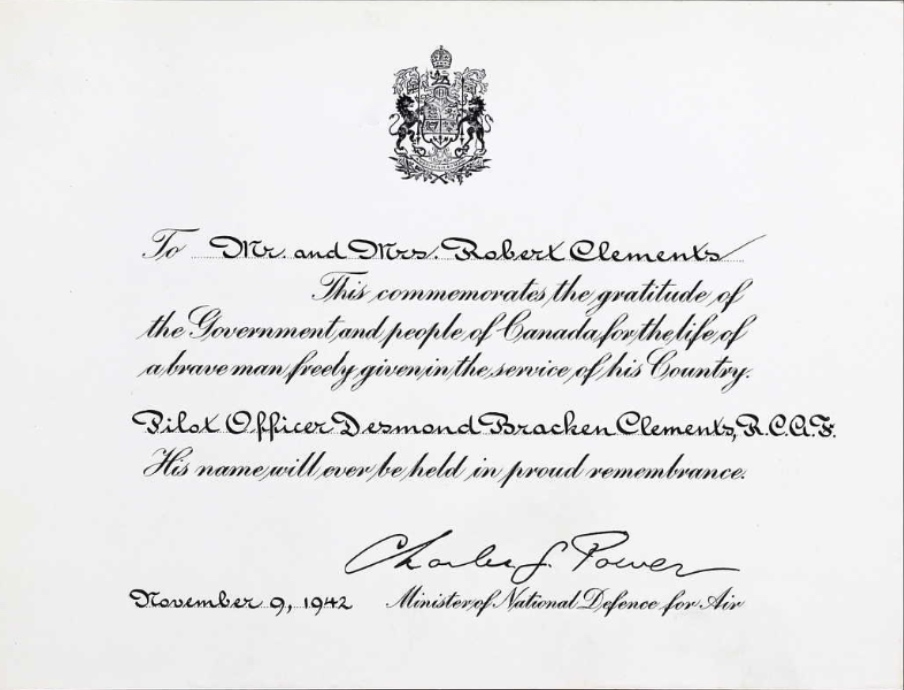 To Mr. and Mrs. Robert Clements
This commemorates the gratitude of
the Government and people of Canada for the life of
a brave man freely given in the service of his Country.
Pilot Officer Desmond Bracken Clements, R.C.A.F.
His name will ever be held in proud remembrance.
Charles G. Power
November 9, 1942 Minister of National Defence for Air